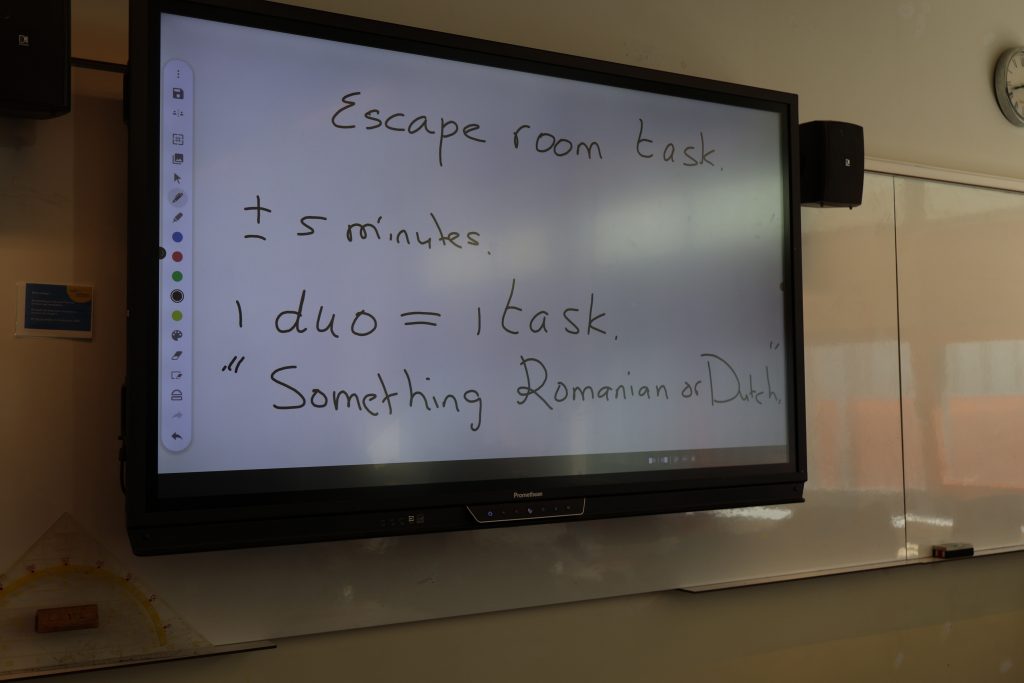 Escape room task.
± 5 minutes.
1 duo = 1 task.
"Something Romanian or Dutch."
Promethean